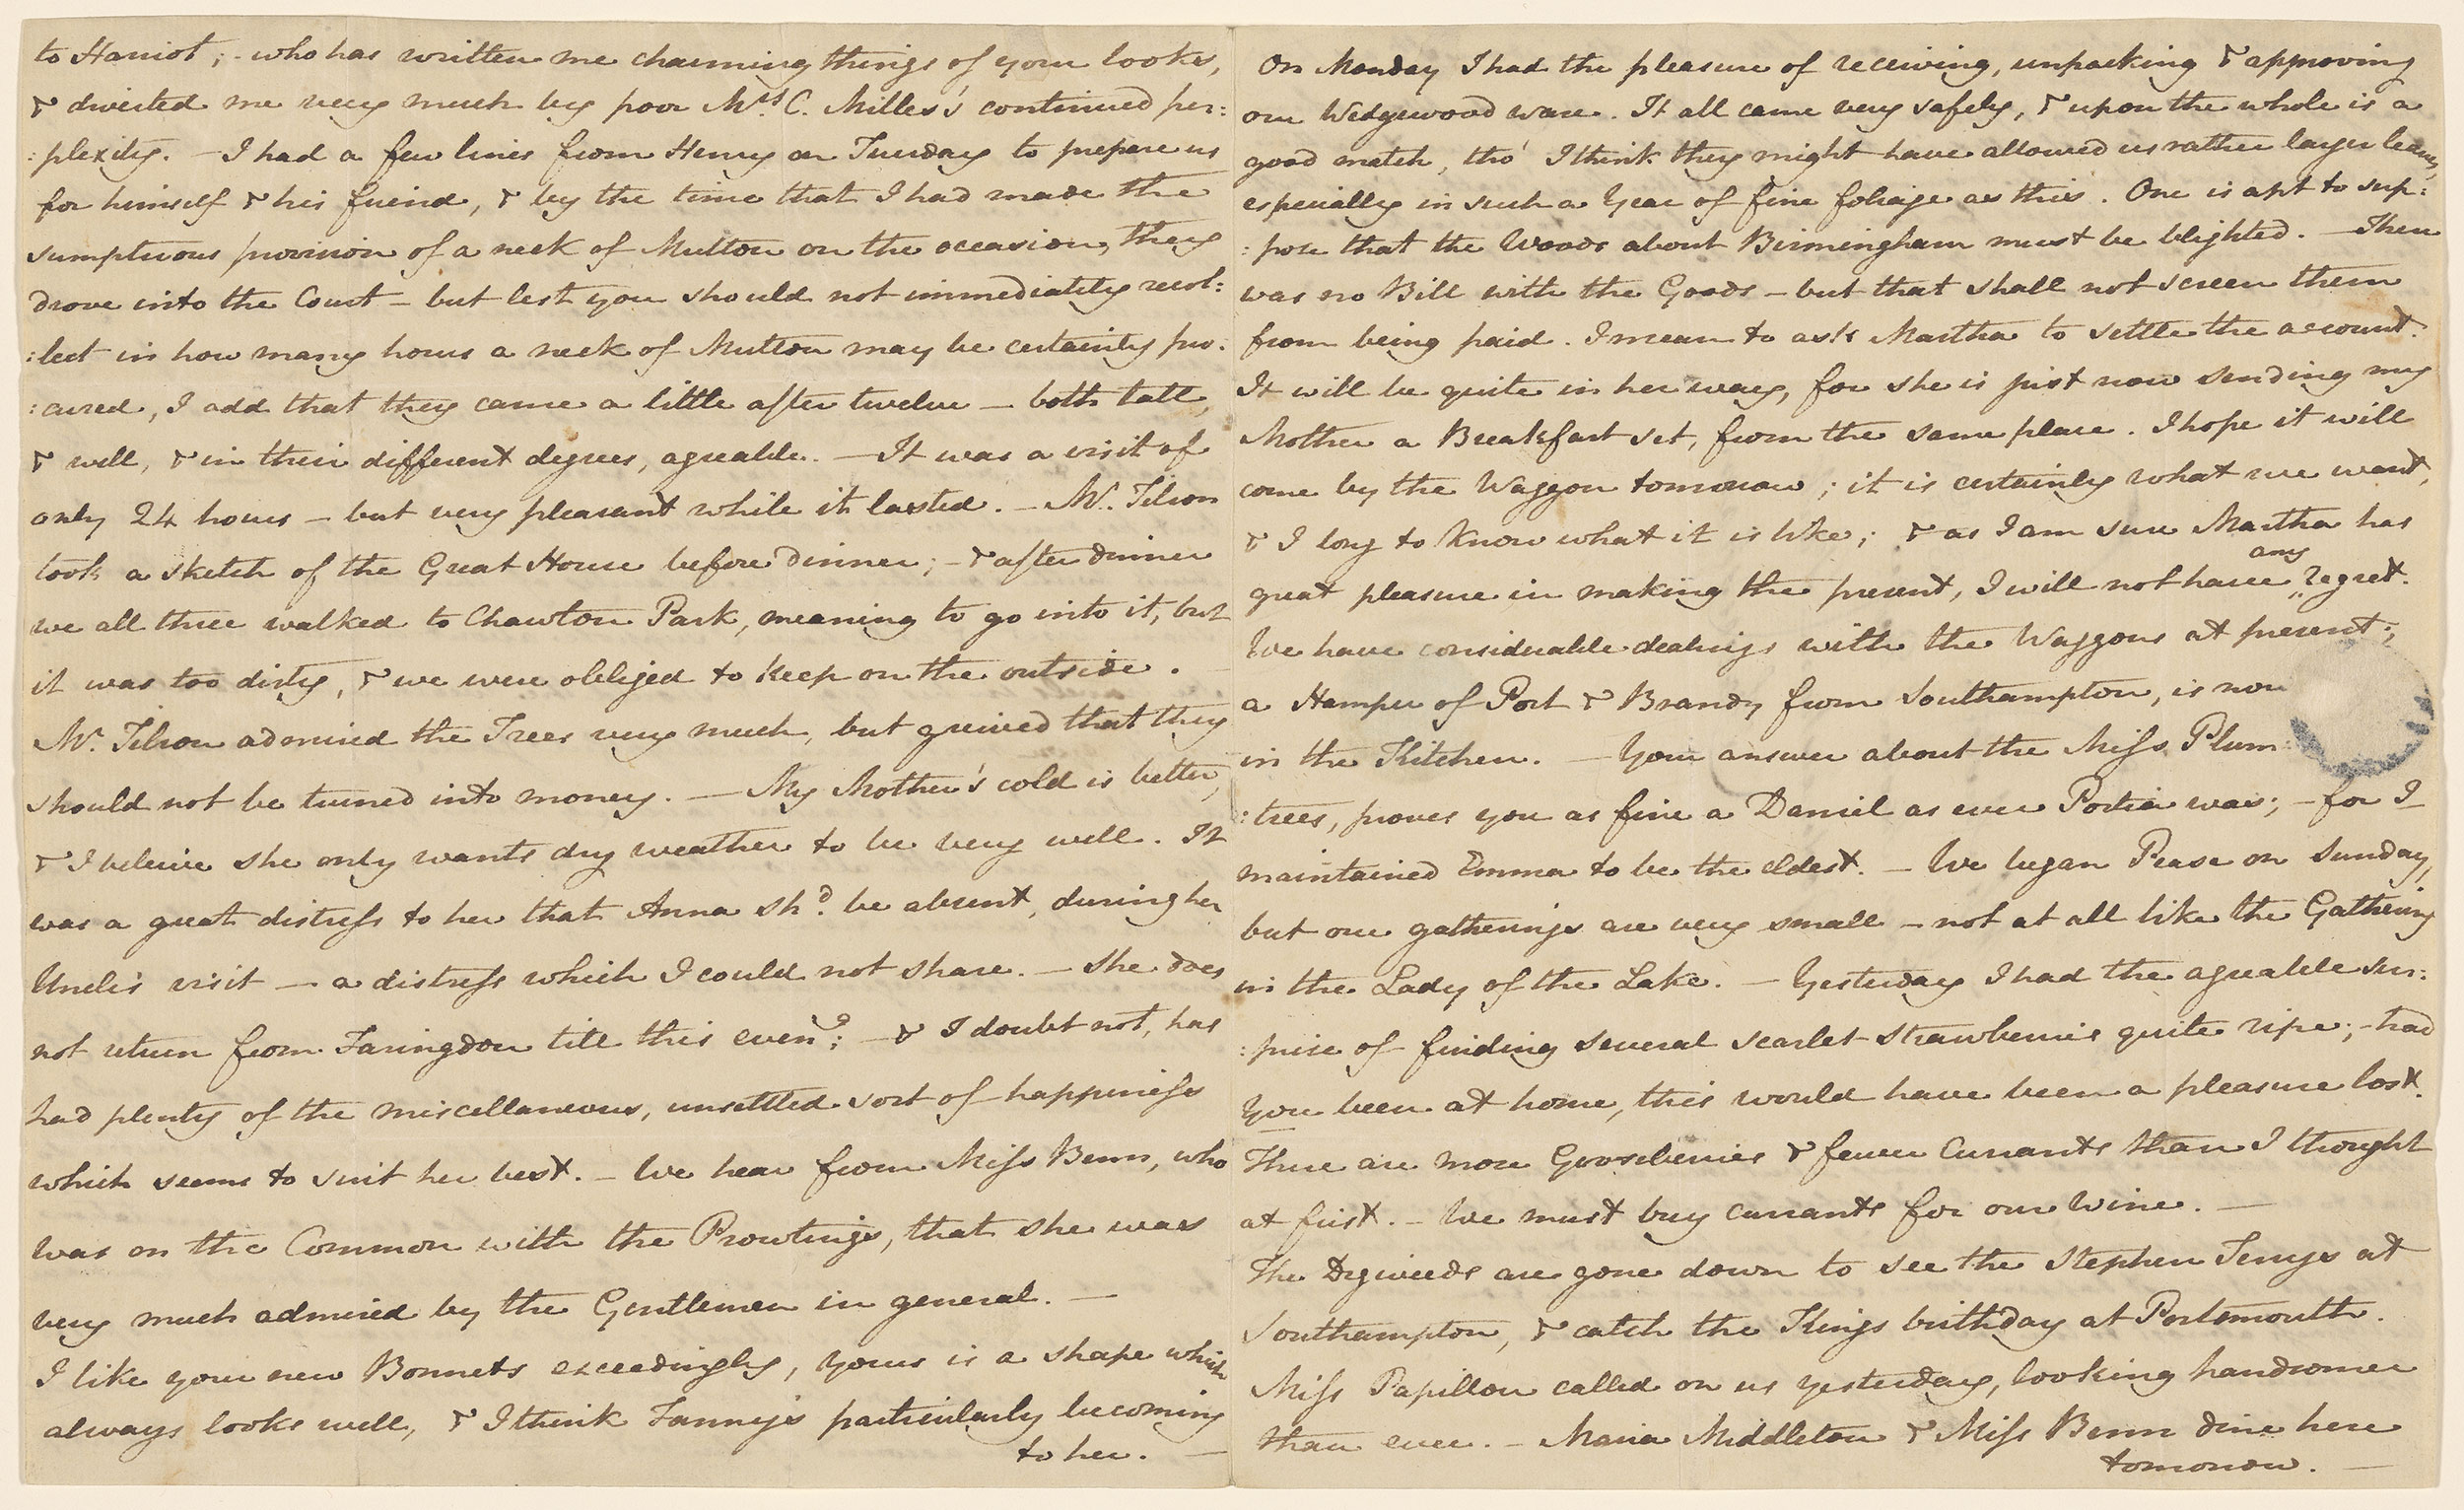 to Harriot; - who has written me charming things of your looks,
& diverted me very much by poor Mrs. C. Milles's continued per:
:plexity. — I had a few lines from Henry on Tuesday to prepare us
for himself & his friend, & by the time that I had made the
sumptuous provision of a neck of Mutton on the occasion, they
drove into the Court — but lest you should not immediately recol:
:lect in how many hours a neck of Mutton may be certainly pro:
:cured, I add that they came a little after twelve — both tall,
& well, & in their different degrees, agreable. — It was a visit of
only 24 hours — but very pleasant while it lasted. — Mr. Tilson
took a sketch of the Great House before dinner; — & after dinner
we all three walked to Chawton Park, meaning to go into it, but
it was too dirty, & we were obliged to keep on the outside.
Mr. Tilson admired the Trees very much, but greived that they
should not be turned into money. — My Mother's cold is better,
& I beleive she only wants dry weather to be very well. It
was a great distress to her that Anna shd. be absent, during her
Uncle's visit — a distress which I could not share. — She does
not return from Faringdon till this eveng; — & I doubt not, has
had plenty of the miscellaneous, unsettled sort of happiness
which seems to suit her best. — We hear from Miss Benn, who
was on the Common with the Prowtings, that she was
very much admired by the Gentlemen in general. —
I like your new Bonnets exceedingly, yours is a shape which
always looks well, & I think Fanny's particularly becoming
to her. —
On Monday I had the pleasure of receiving, unpacking & approving
our Wedgewood ware. It all came very safely, & upon the whole is a
good match, tho' I think they might have allowed us rather larger leaves,
especially in such a Year of fine foliage as this. One is apt to sup:
:pose that the Woods about Birmingham must be blighted. — There
was no Bill with the Goods — but that shall not screen them
from being paid. I mean to ask Martha to settle the account.
It will be quite in her way, for she is just now sending my
Mother a Breakfast set, from the same place. I hope it will
come by the Waggon tomorrow; it is certainly what we want,
& I long to know what it is like; & as I am sure Martha has
great pleasure in making the present, I will not have any regret.
We have considerable dealings with the Waggons at present;
a Hamper of Port & Brandy from Southampton, is now
in the Kitchen. — Your answer about the Miss Plum:
:trees, proves you as fine a Daniel as ever Portia was; — for I
maintained Emma to be the eldest. — We began Pease on Sunday,
but our gatherings are very small — not at all like the Gathering
in the Lady of the Lake. — Yesterday I had the agreable sur:
:prise of finding several scarlet strawberries quite ripe; — had
you been at home, this would have been a pleasure lost.
There are more Gooseberries & fewer Currants than I thought
at first. — We must buy currants for our Wine. —
The Digweeds are gone down to see the Stephen Terrys at
Southampton, & catch the Kings birthday at Portsmouth.
Miss Papillon called on us yesterday, looking handsomer
than ever. — Maria Middleton & Miss Benn dine here
tomorrow. —